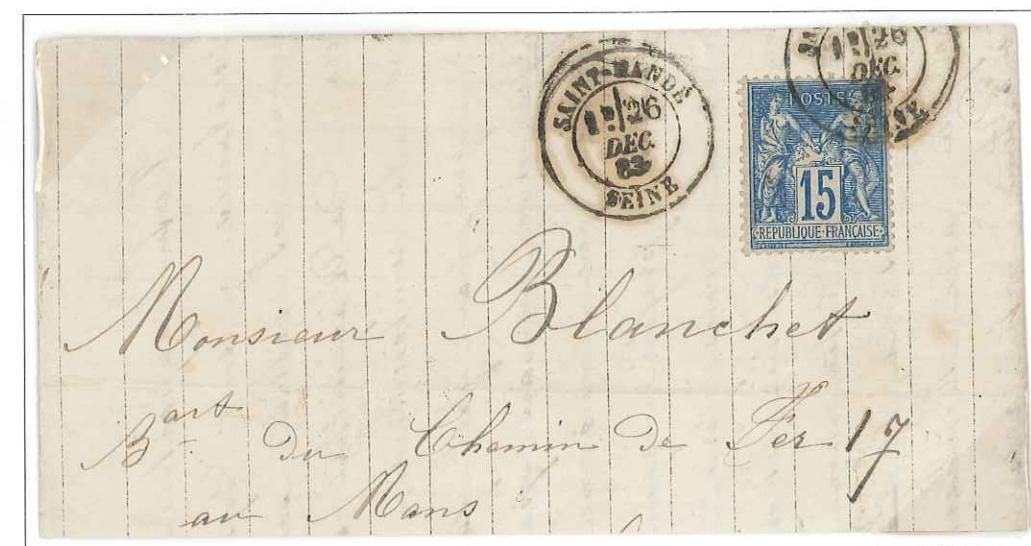 SAINT-MANDÉ
26
DEC.
83
SEINE
26
DEC.
POSTE
15
REPUBLIQUE FRANÇAISE
Monsieur Blanchet
Bart du Chemin de Fer 17
au Mans